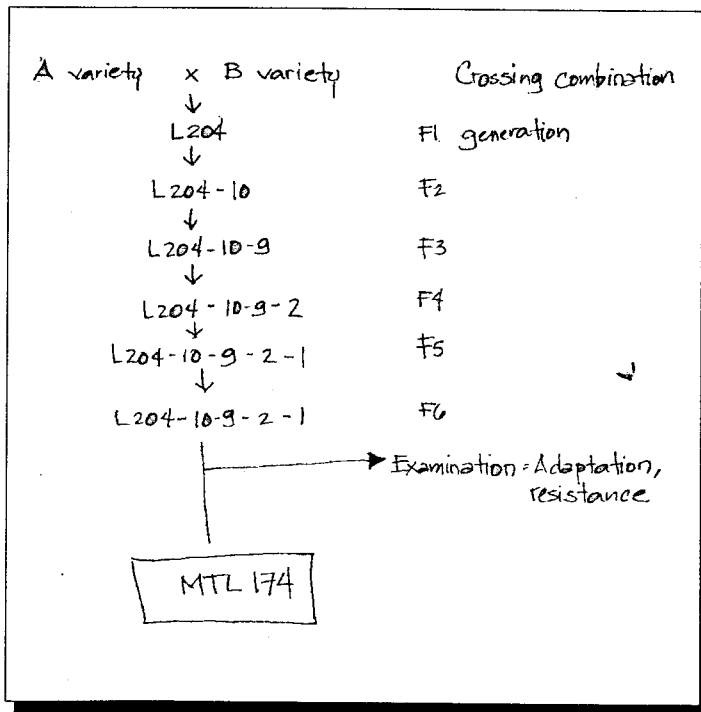 A variety x B variety Crossing combination
L204 F1 generation
L204-10 F2
L204-10-9 F3
L204-10-9-2 F4
L204-10-9-2-1 F5
L204-10-9-2-1 F6
Examination: Adaptation,
resistance
MTL 174